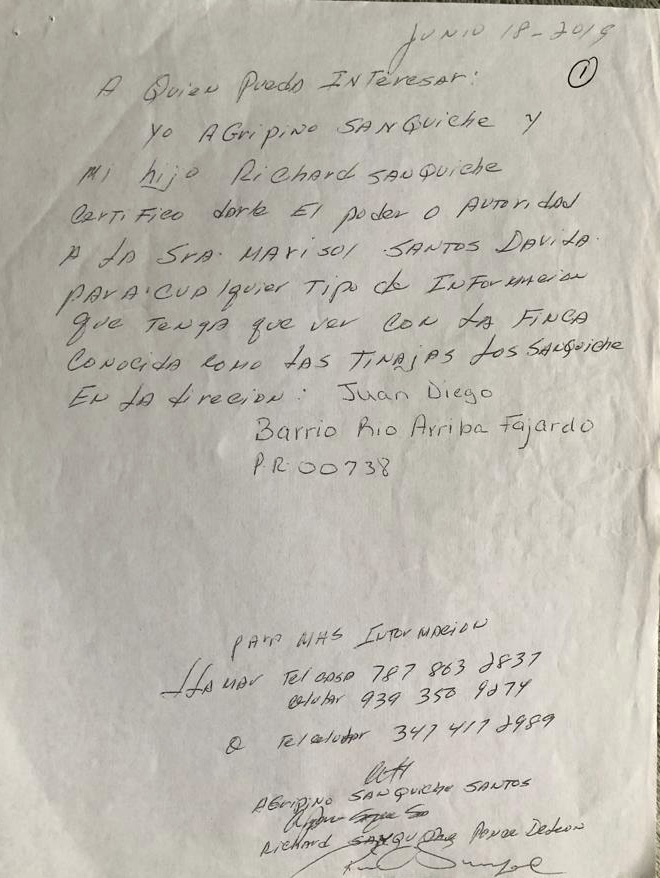 JUNIO 18-2019
1
A Quien Puedo INteresar:
Yo AGripino SANQuiche y
Mi hijo Richard SANQuiche
CertiFico darle El poder o AutoridAd
A LA SrA. MArisol SANTOS DAviLA.
pArA cuAlquier Tipo de INFormAcion
que TengA que ver CON LA FINCA
CONOcidA como LAS TINAjAS LOS SANQuiche
EN LA direcion: Juan Diego
Barrio Rio Arriba Fajardo
P.R. 00738
pArA MAS InformAcion
LLAMAr Tel CASA 787 863 2837
celular 939 350 9274
O Tel celular 347 417 2989
AGripino SANQuiche SANTOS
Richard SANQUiche Ponce DeLeon